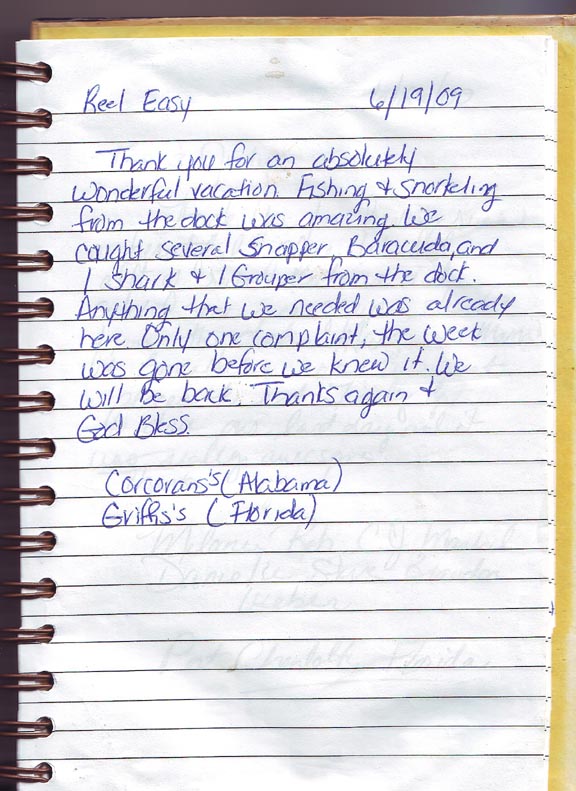 Reel Easy 6/19/09
Thank you for an absolutely
wonderful vacation. Fishing & snorkeling
from the dock was amazing. We
caught several Snapper, Baracuda, and
1 Shark & 1 Grouper from the dock.
Anything that we needed was already
here. Only one complaint, the week
was gone before we knew it. We
will be back. Thanks again &
God Bless.
Corcorans's (Alabama)
Griffis's (Florida)